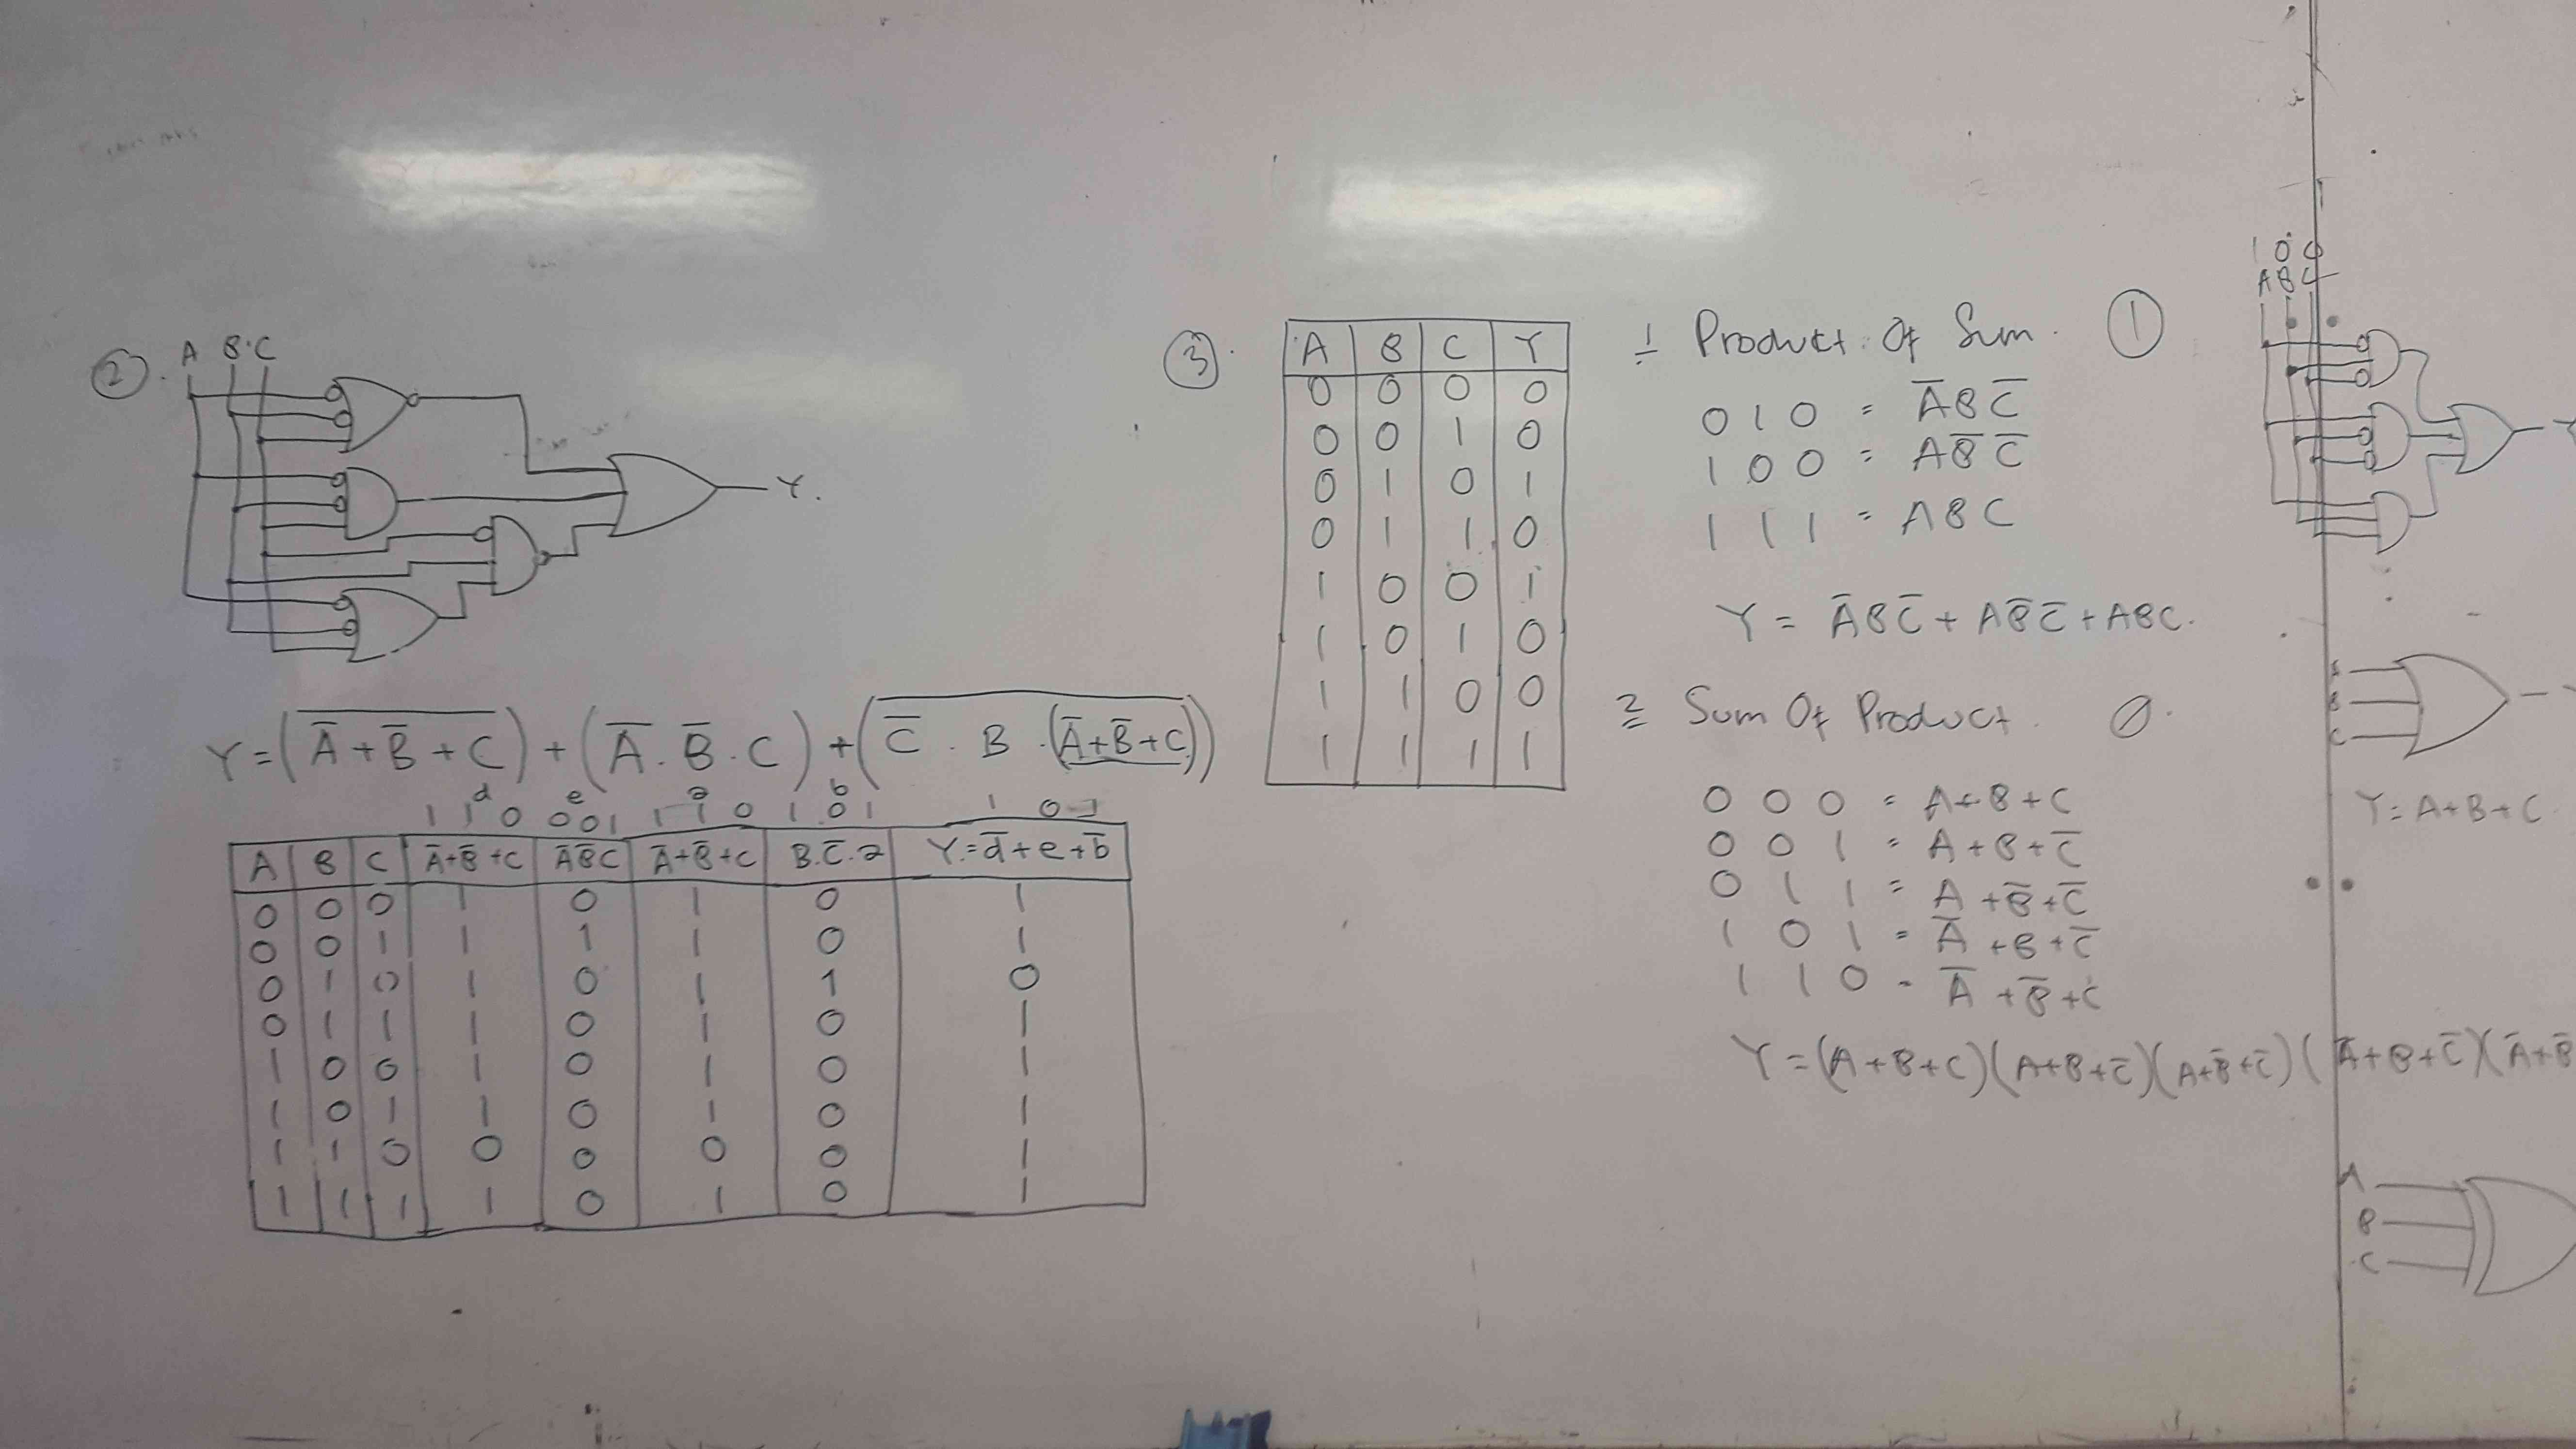 ②.
A B·C
Y.
Y=(\overline{A̅+B̅+C})+(A̅.B̅.C)+(\overline{C̅ . B .(A̅+B̅+C)})
d e a b
1 1 0 0 0 1 1 1 0 1 0 1 1 0 1
A B C A̅+B̅+C A̅B̅C A̅+B̅+C B.C̅.a Y=d̅+e+b̅
0 0 0 1 0 1 0 1
0 0 1 1 1 1 0 1
0 1 0 1 0 1 1 0
0 1 1 1 0 1 0 1
1 0 0 1 0 1 0 1
1 0 1 1 0 1 0 1
1 1 0 0 0 0 0 1
1 1 1 1 0 1 0 1
③.
A B C Y
0 0 0 0
0 0 1 0
0 1 0 1
0 1 1 0
1 0 0 1
1 0 1 0
1 1 0 0
1 1 1 1
1 Product Of Sum. ①
0 1 0 = A̅BC̅
1 0 0 = AB̅C̅
1 1 1 = ABC
Y = A̅BC̅ + AB̅C̅ + ABC.
2 Sum Of Product. 0.
0 0 0 = A+B+C
0 0 1 = A+B+C̅
0 1 1 = A+B̅+C̅
1 0 1 = A̅+B+C̅
1 1 0 = A̅+B̅+C
Y=(A+B+C)(A+B+C̅)(A+B̅+C̅)(A̅+B+C̅)(A̅+B̅
1 0 0
A B C
Y
B
C
Y=A+B+C
A
B
C